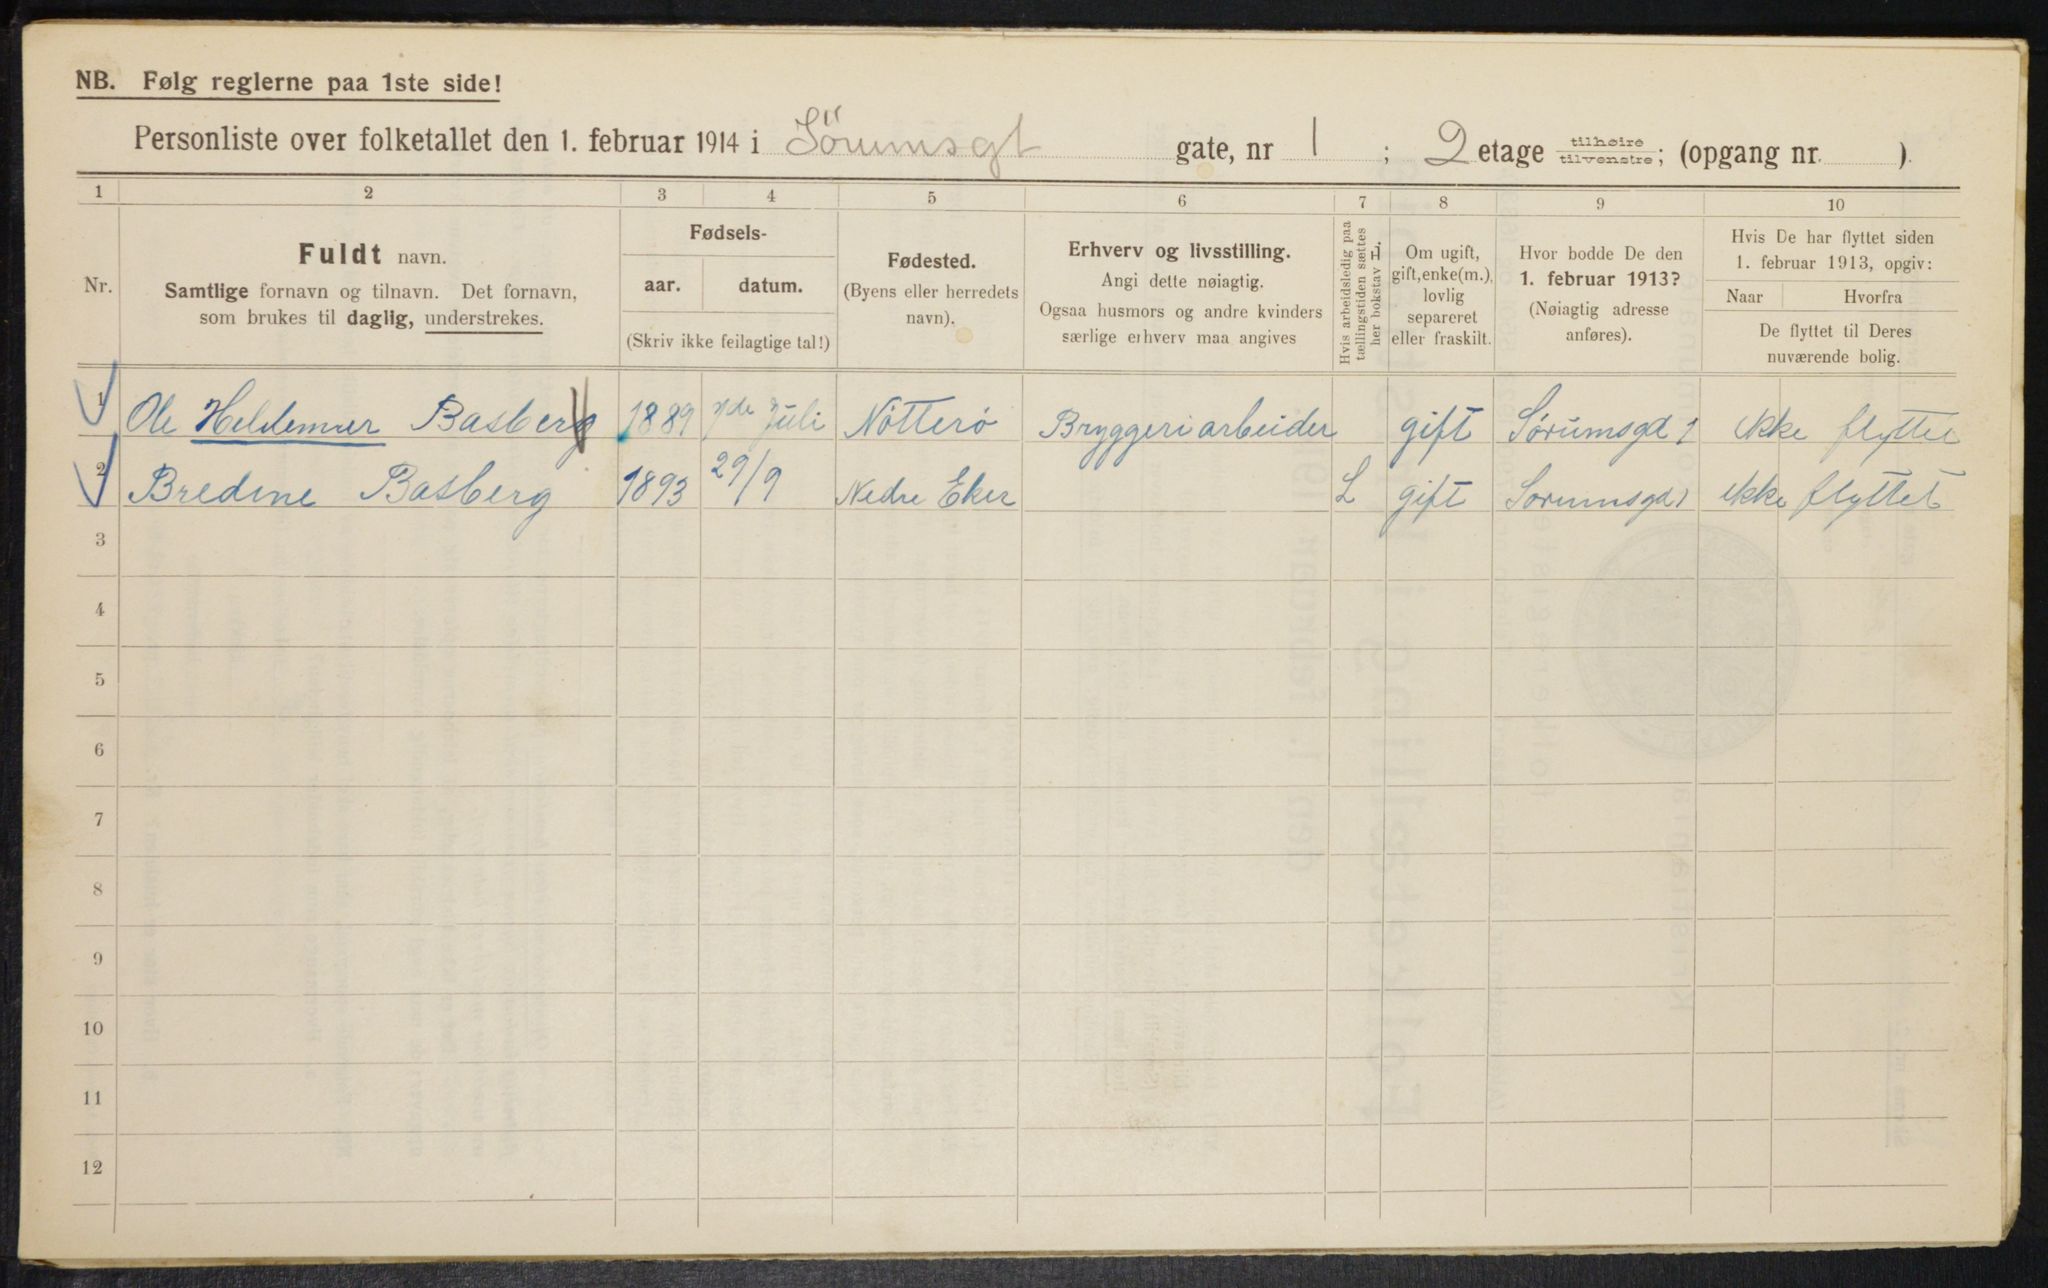 NB. Følg reglerne paa 1ste side!
Personliste over folketallet den 1. februar 1914 i Sörumsgt gate, nr 1 ; 2 etage tilhøire/tilvenstre; (opgang nr. ).
1 2 3 4 5 6 7 8 9 10
Nr.
Fuldt navn.
Samtlige fornavn og tilnavn. Det fornavn,
som brukes til daglig, understrekes.
Fødsels-
aar. datum.
(Skriv ikke feilagtige tal!)
Fødested.
(Byens eller herredets
navn).
Erhverv og livsstilling.
Angi dette nøiagtig.
Ogsaa husmors og andre kvinders
særlige erhverv maa angives
Hvis arbeidsledig paa
tællingstiden sættes
her bokstav L.
Om ugift,
gift, enke(m.),
lovlig
separeret
eller fraskilt.
Hvor bodde De den
1. februar 1913?
(Nøiagtig adresse
anføres).
Hvis De har flyttet siden
1. februar 1913, opgiv:
Naar Hvorfra
De flyttet til Deres
nuværende bolig.
1 Ole Basberg 1889 7de Juli Nötterö Bryggeriarbeider gift Sørumsgd 1 ikke flyttet
2 Bredine Basberg 1893 29/9 Nedre Eker L gift Sorumsgd 1 ikke flyttet
3
4
5
6
7
8
9
10
11
12